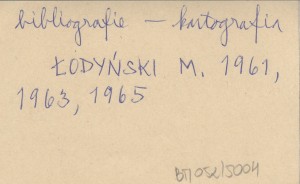 bibliografie — kartografia
ŁODYŃSKI M. 1961,
1963, 1965
BT/052/5004